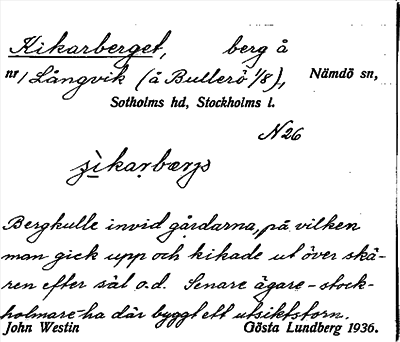 Kikarberget, berg å
nr 1 Långvik (å Bullerö 1/8), Nämdö sn,
Sotholms hd, Stockholms l.
N26
Bergkulle invid gårdarna, på vilken
man gick upp och kikade ut över skä-
ren efter säl o.d. Senare ägare - stock-
holmare - ha där byggt ett utsiktstorn.
John Westin Gösta Lundberg 1936.